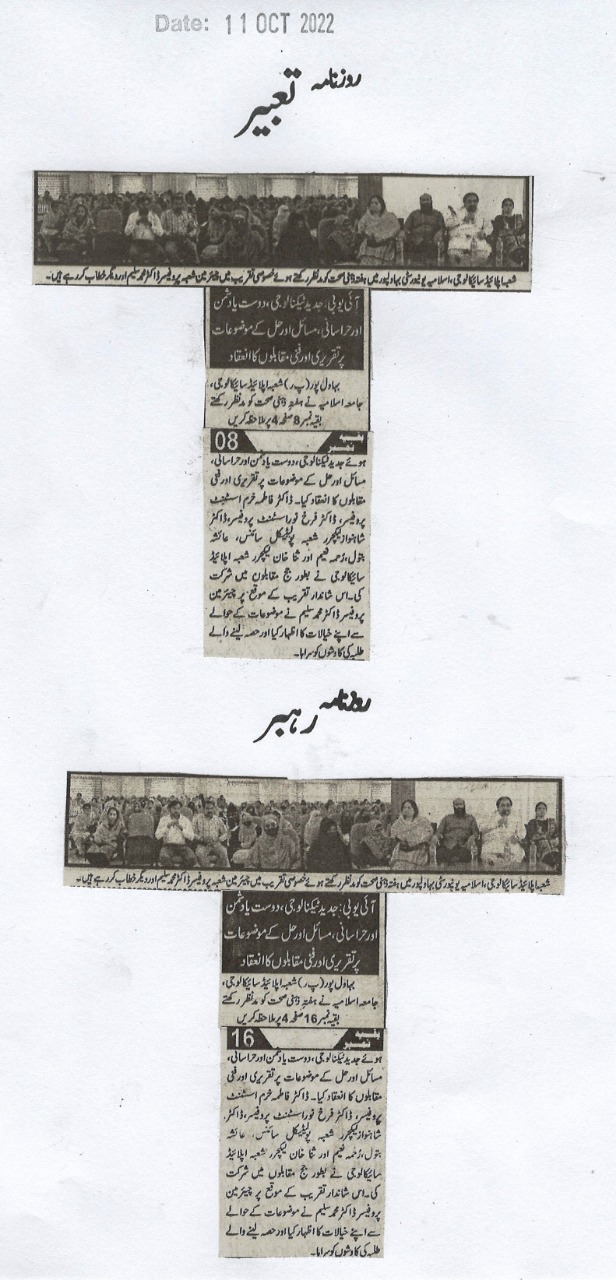 Date: 11 OCT 2022
روزنامہ تعبیر
شعبہ اپلائیڈ سائیکالوجی، اسلامیہ یونیورسٹی بہاولپور میں ہفتہ ذہنی صحت کو مدنظر رکھتے ہوئے خصوصی تقریب میں چیئرمین شعبہ پروفیسر ڈاکٹر محمد سلیم اور دیگر خطاب کر رہے ہیں۔
آئی یو بی: جدید ٹیکنالوجی، دوست یا دشمن
اور حراسانی، مسائل اور حل کے موضوعات
پر تقریری اور فنی مقابلوں کا انعقاد
بہاول پور (پ ر) شعبہ اپلائیڈ سائیکالوجی،
جامعہ اسلامیہ نے ہفتہ ذہنی صحت کو مدنظر رکھتے
بقیہ نمبر 8 صفحہ 4 پر ملاحظہ کریں
بقیہ نمبر 08
ہوئے جدید ٹیکنالوجی، دوست یا دشمن اور حراسانی،
مسائل اور حل کے موضوعات پر تقریری اور فنی
مقابلوں کا انعقاد کیا۔ ڈاکٹر فاطمہ خرم اسسٹنٹ
پروفیسر، ڈاکٹر فرخ نور اسسٹنٹ پروفیسر، ڈاکٹر
شاہنواز لیکچرر شعبہ پولیٹیکل سائنس، عائشہ
بتول، رحمہ فہیم اور ثنا خان لیکچرر شعبہ اپلائیڈ
سائیکالوجی نے بطور جج مقابلوں میں شرکت
کی۔ اس شاندار تقریب کے موقع پر چیئرمین
پروفیسر ڈاکٹر محمد سلیم نے موضوعات کے حوالے
سے اپنے خیالات کا اظہار کیا اور حصہ لینے والے
طلبہ کی کاوشوں کو سراہا۔
روزنامہ رہبر
شعبہ اپلائیڈ سائیکالوجی، اسلامیہ یونیورسٹی بہاولپور میں ہفتہ ذہنی صحت کو مدنظر رکھتے ہوئے خصوصی تقریب میں چیئرمین شعبہ پروفیسر ڈاکٹر محمد سلیم اور دیگر خطاب کر رہے ہیں۔
آئی یو بی: جدید ٹیکنالوجی، دوست یا دشمن
اور حراسانی، مسائل اور حل کے موضوعات
پر تقریری اور فنی مقابلوں کا انعقاد
بہاول پور (پ ر) شعبہ اپلائیڈ سائیکالوجی،
جامعہ اسلامیہ نے ہفتہ ذہنی صحت کو مدنظر رکھتے
بقیہ نمبر 16 صفحہ 4 پر ملاحظہ کریں
بقیہ نمبر 16
ہوئے جدید ٹیکنالوجی، دوست یا دشمن اور حراسانی،
مسائل اور حل کے موضوعات پر تقریری اور فنی
مقابلوں کا انعقاد کیا۔ ڈاکٹر فاطمہ خرم اسسٹنٹ
پروفیسر، ڈاکٹر فرخ نور اسسٹنٹ پروفیسر، ڈاکٹر
شاہنواز لیکچرر شعبہ پولیٹیکل سائنس، عائشہ
بتول، رحمہ فہیم اور ثنا خان لیکچرر شعبہ اپلائیڈ
سائیکالوجی نے بطور جج مقابلوں میں شرکت
کی۔ اس شاندار تقریب کے موقع پر چیئرمین
پروفیسر ڈاکٹر محمد سلیم نے موضوعات کے حوالے
سے اپنے خیالات کا اظہار کیا اور حصہ لینے والے
طلبہ کی کاوشوں کو سراہا۔